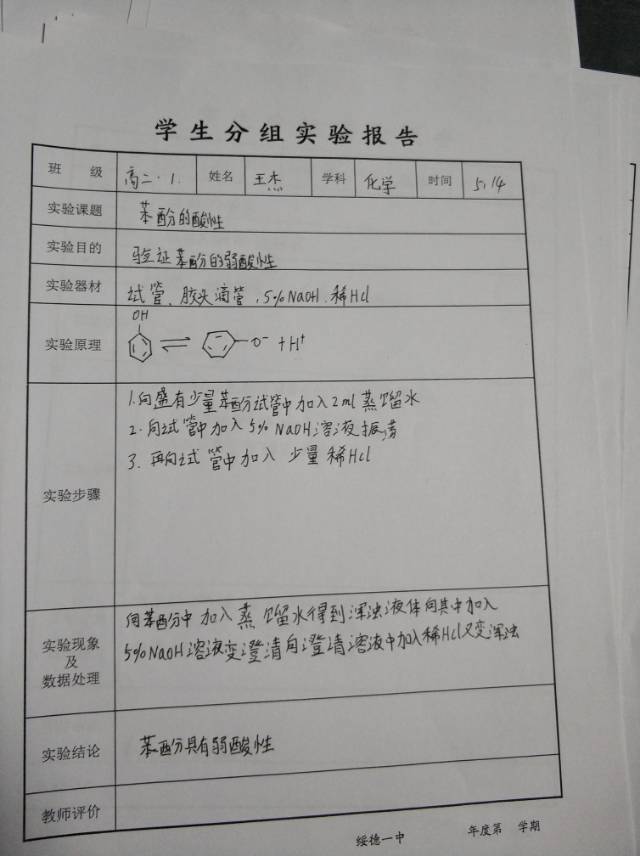 学生分组实验报告
班 级 高二.1. 姓名 王杰 学科 化学 时间 5.14
实验课题 苯酚的酸性
实验目的 验证苯酚的弱酸性
实验器材 试管、胶头滴管、5%NaOH、稀Hcl
OH
实验原理 ⇌ O⁻ + H⁺
1.向盛有少量苯酚试管中加入2ml蒸馏水
2.向试管中加入5% NaOH溶液振荡
3.再向试管中加入少量稀Hcl
实验步骤
向苯酚中加入蒸馏水得到浑浊液体向其中加入
5%NaOH溶液变澄清向澄清溶液中加入稀Hcl又变浑浊
实验现象
及
数据处理
实验结论 苯酚具有弱酸性
教师评价
绥德一中 年度第 学期